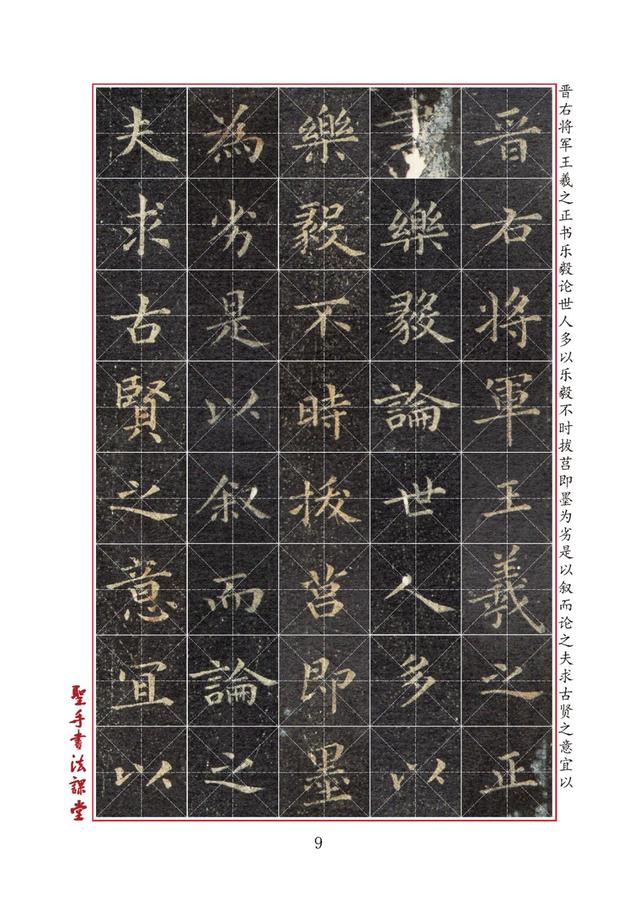 晋右将军王羲之正书乐毅论世人多以乐毅不时拔莒即墨为劣是以叙而论之夫求古贤之意宜以
晋右将軍王羲之正
書樂毅論世人多以
樂毅不時拔莒即墨
為劣是以叙而論之
夫求古賢之意宜以
聖手書法課堂
9